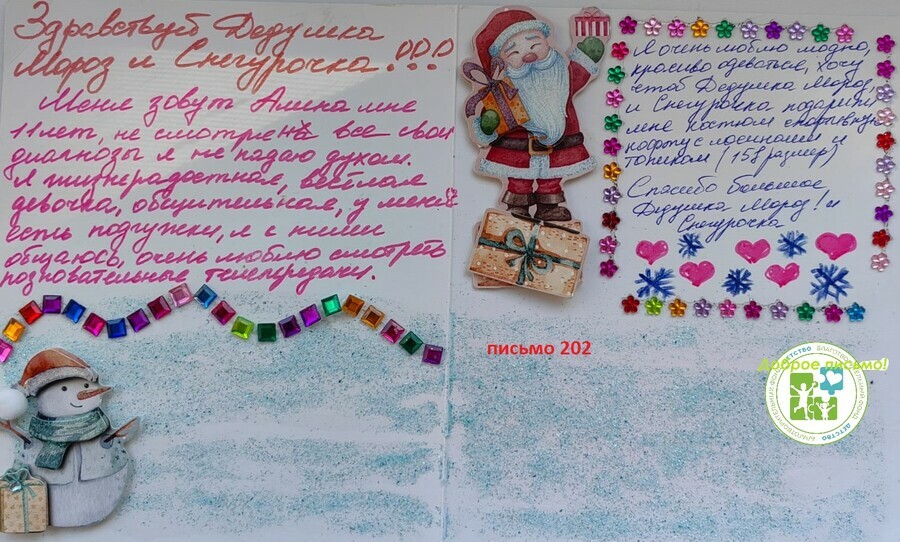 Здравствуй Дедушка
Мороз и Снегурочка!!!
Меня зовут Алина мне
11 лет, не смотрена все свои
диагнозы я не падаю духом.
Я жизнерадостная, весёлая
девочка, общительная, у меня
есть подружки, я с ними
общаюсь, очень люблю смотреть
розновательные телепередачи.
Я очень люблю модно,
красиво одеваться, хочу
Дедушка Мороз,
и Снегурочка подарите
мне костюм спортивную
кофту с лосинами и
топиком (158 размер)
Спасибо большое,
Дедушка Мороз! и
Снегурочка
письмо 202
Доброе письмо!
БЛАГОТВОРИТЕЛЬНЫЙ ФОНД ДЕТСТВО